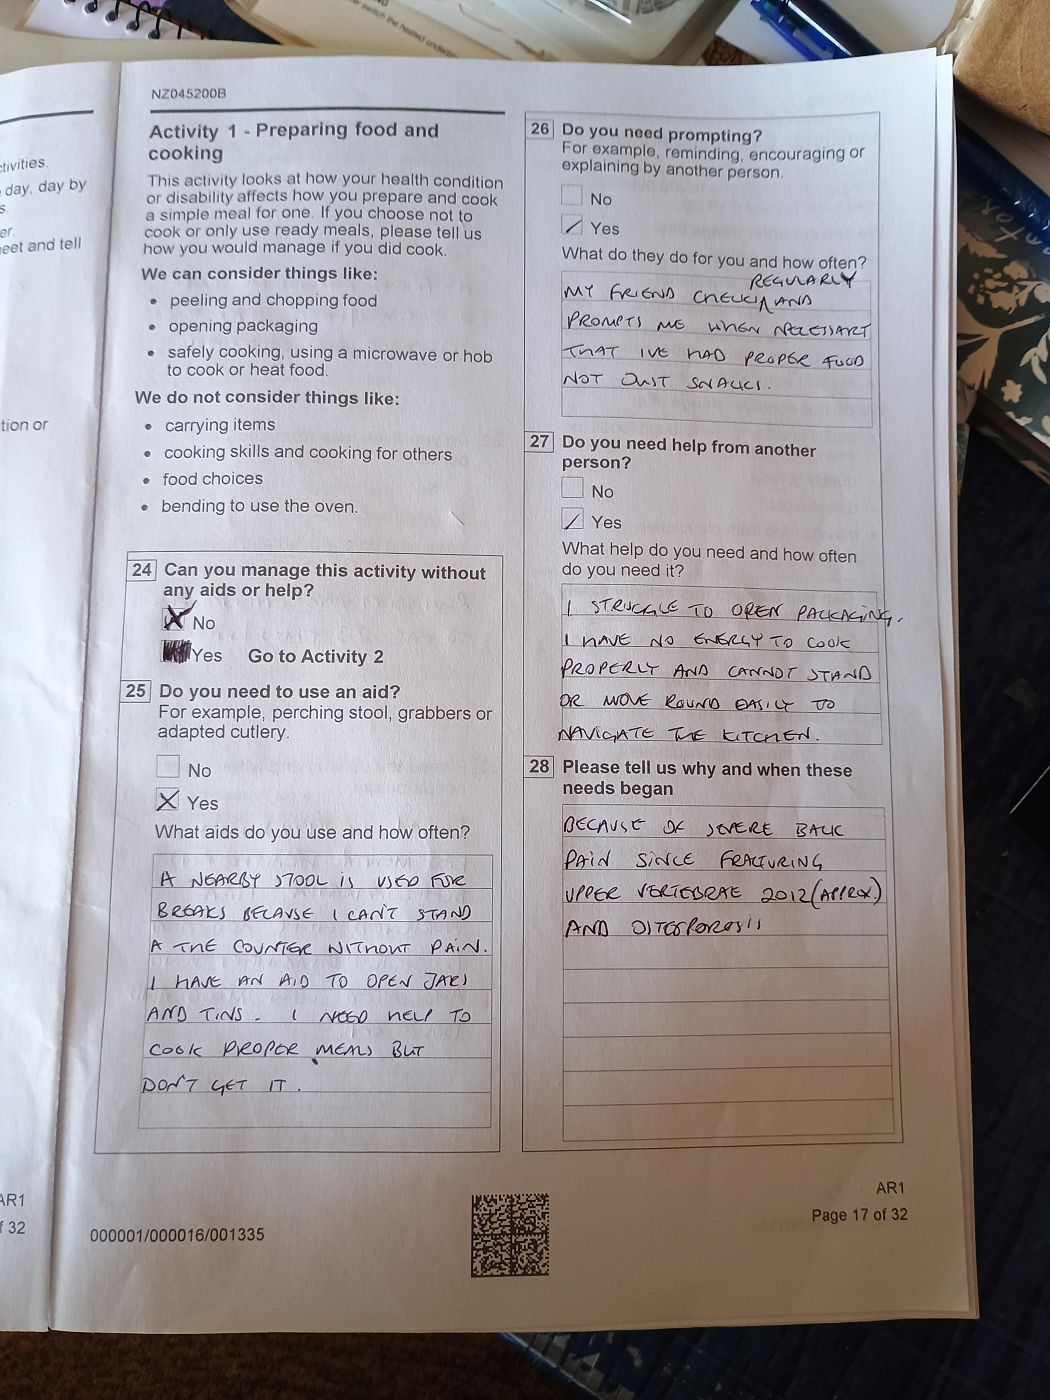 er switch the heated underb
NZ045200B
tivities.
day, day by
s
er.
eet and tell
tion or
AR1
f 32
Activity 1 - Preparing food and
cooking
This activity looks at how your health condition
or disability affects how you prepare and cook
a simple meal for one. If you choose not to
cook or only use ready meals, please tell us
how you would manage if you did cook.
We can consider things like:
• peeling and chopping food
• opening packaging
• safely cooking, using a microwave or hob
to cook or heat food.
We do not consider things like:
• carrying items
• cooking skills and cooking for others
• food choices
• bending to use the oven.
24 Can you manage this activity without
any aids or help?
No
Yes Go to Activity 2
25 Do you need to use an aid?
For example, perching stool, grabbers or
adapted cutlery.
No
Yes
What aids do you use and how often?
A NEARBY STOOL IS USED FOR
BREAKS BECAUSE I CAN'T STAND
A THE COUNTER WITHOUT PAIN.
I HAVE AN AID TO OPEN JARS
AND TINS - I NEED HELP TO
COOK PROPER MEALS BUT
DON'T GET IT.
26 Do you need prompting?
For example, reminding, encouraging or
explaining by another person.
No
Yes
What do they do for you and how often?
REGULARLY
MY FRIEND CHECKS AND
PROMPTS ME WHEN NECESSARY
THAT IVE HAD PROPER FOOD
NOT JUST SNACKS.
27 Do you need help from another
person?
No
Yes
What help do you need and how often
do you need it?
I STRUGGLE TO OPEN PACKAGING.
I HAVE NO ENERGY TO COOK
PROPERLY AND CANNOT STAND
OR MOVE ROUND EASILY TO
NAVIGATE THE KITCHEN.
28 Please tell us why and when these
needs began
BECAUSE OF SEVERE BACK
PAIN SINCE FRACTURING
UPPER VERTEBRAE 2012 (APPROX)
AND OSTEOPOROSIS
000001/000016/001335
AR1
Page 17 of 32